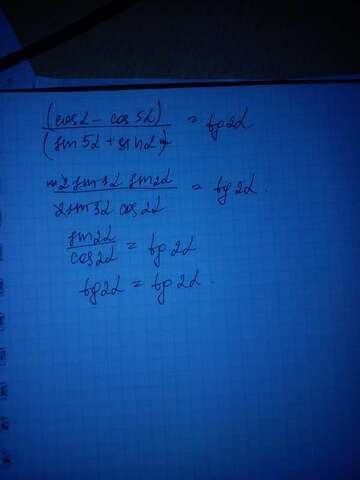 (cosα - cos5α) / (sin5α + sinα) = tg2α
2sin3α sin2α / 2sin3α cos2α = tg2α.
sin2α / cos2α = tg2α
tg2α = tg2α.